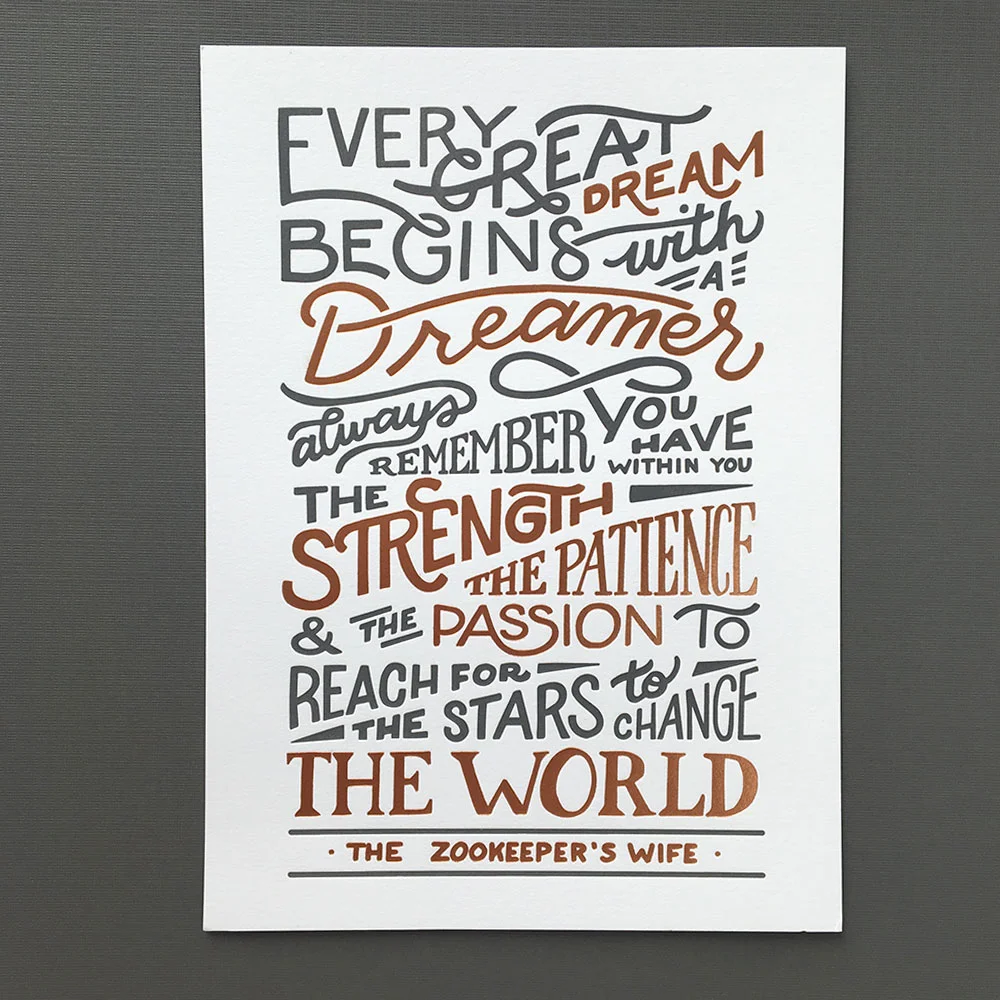 EVERY GREAT DREAM
BEGINS with A
Dreamer
always REMEMBER YOU HAVE WITHIN YOU
THE STRENGTH
THE PATIENCE
& THE PASSION TO
REACH FOR THE STARS to CHANGE
THE WORLD
· THE ZOOKEEPER'S WIFE ·